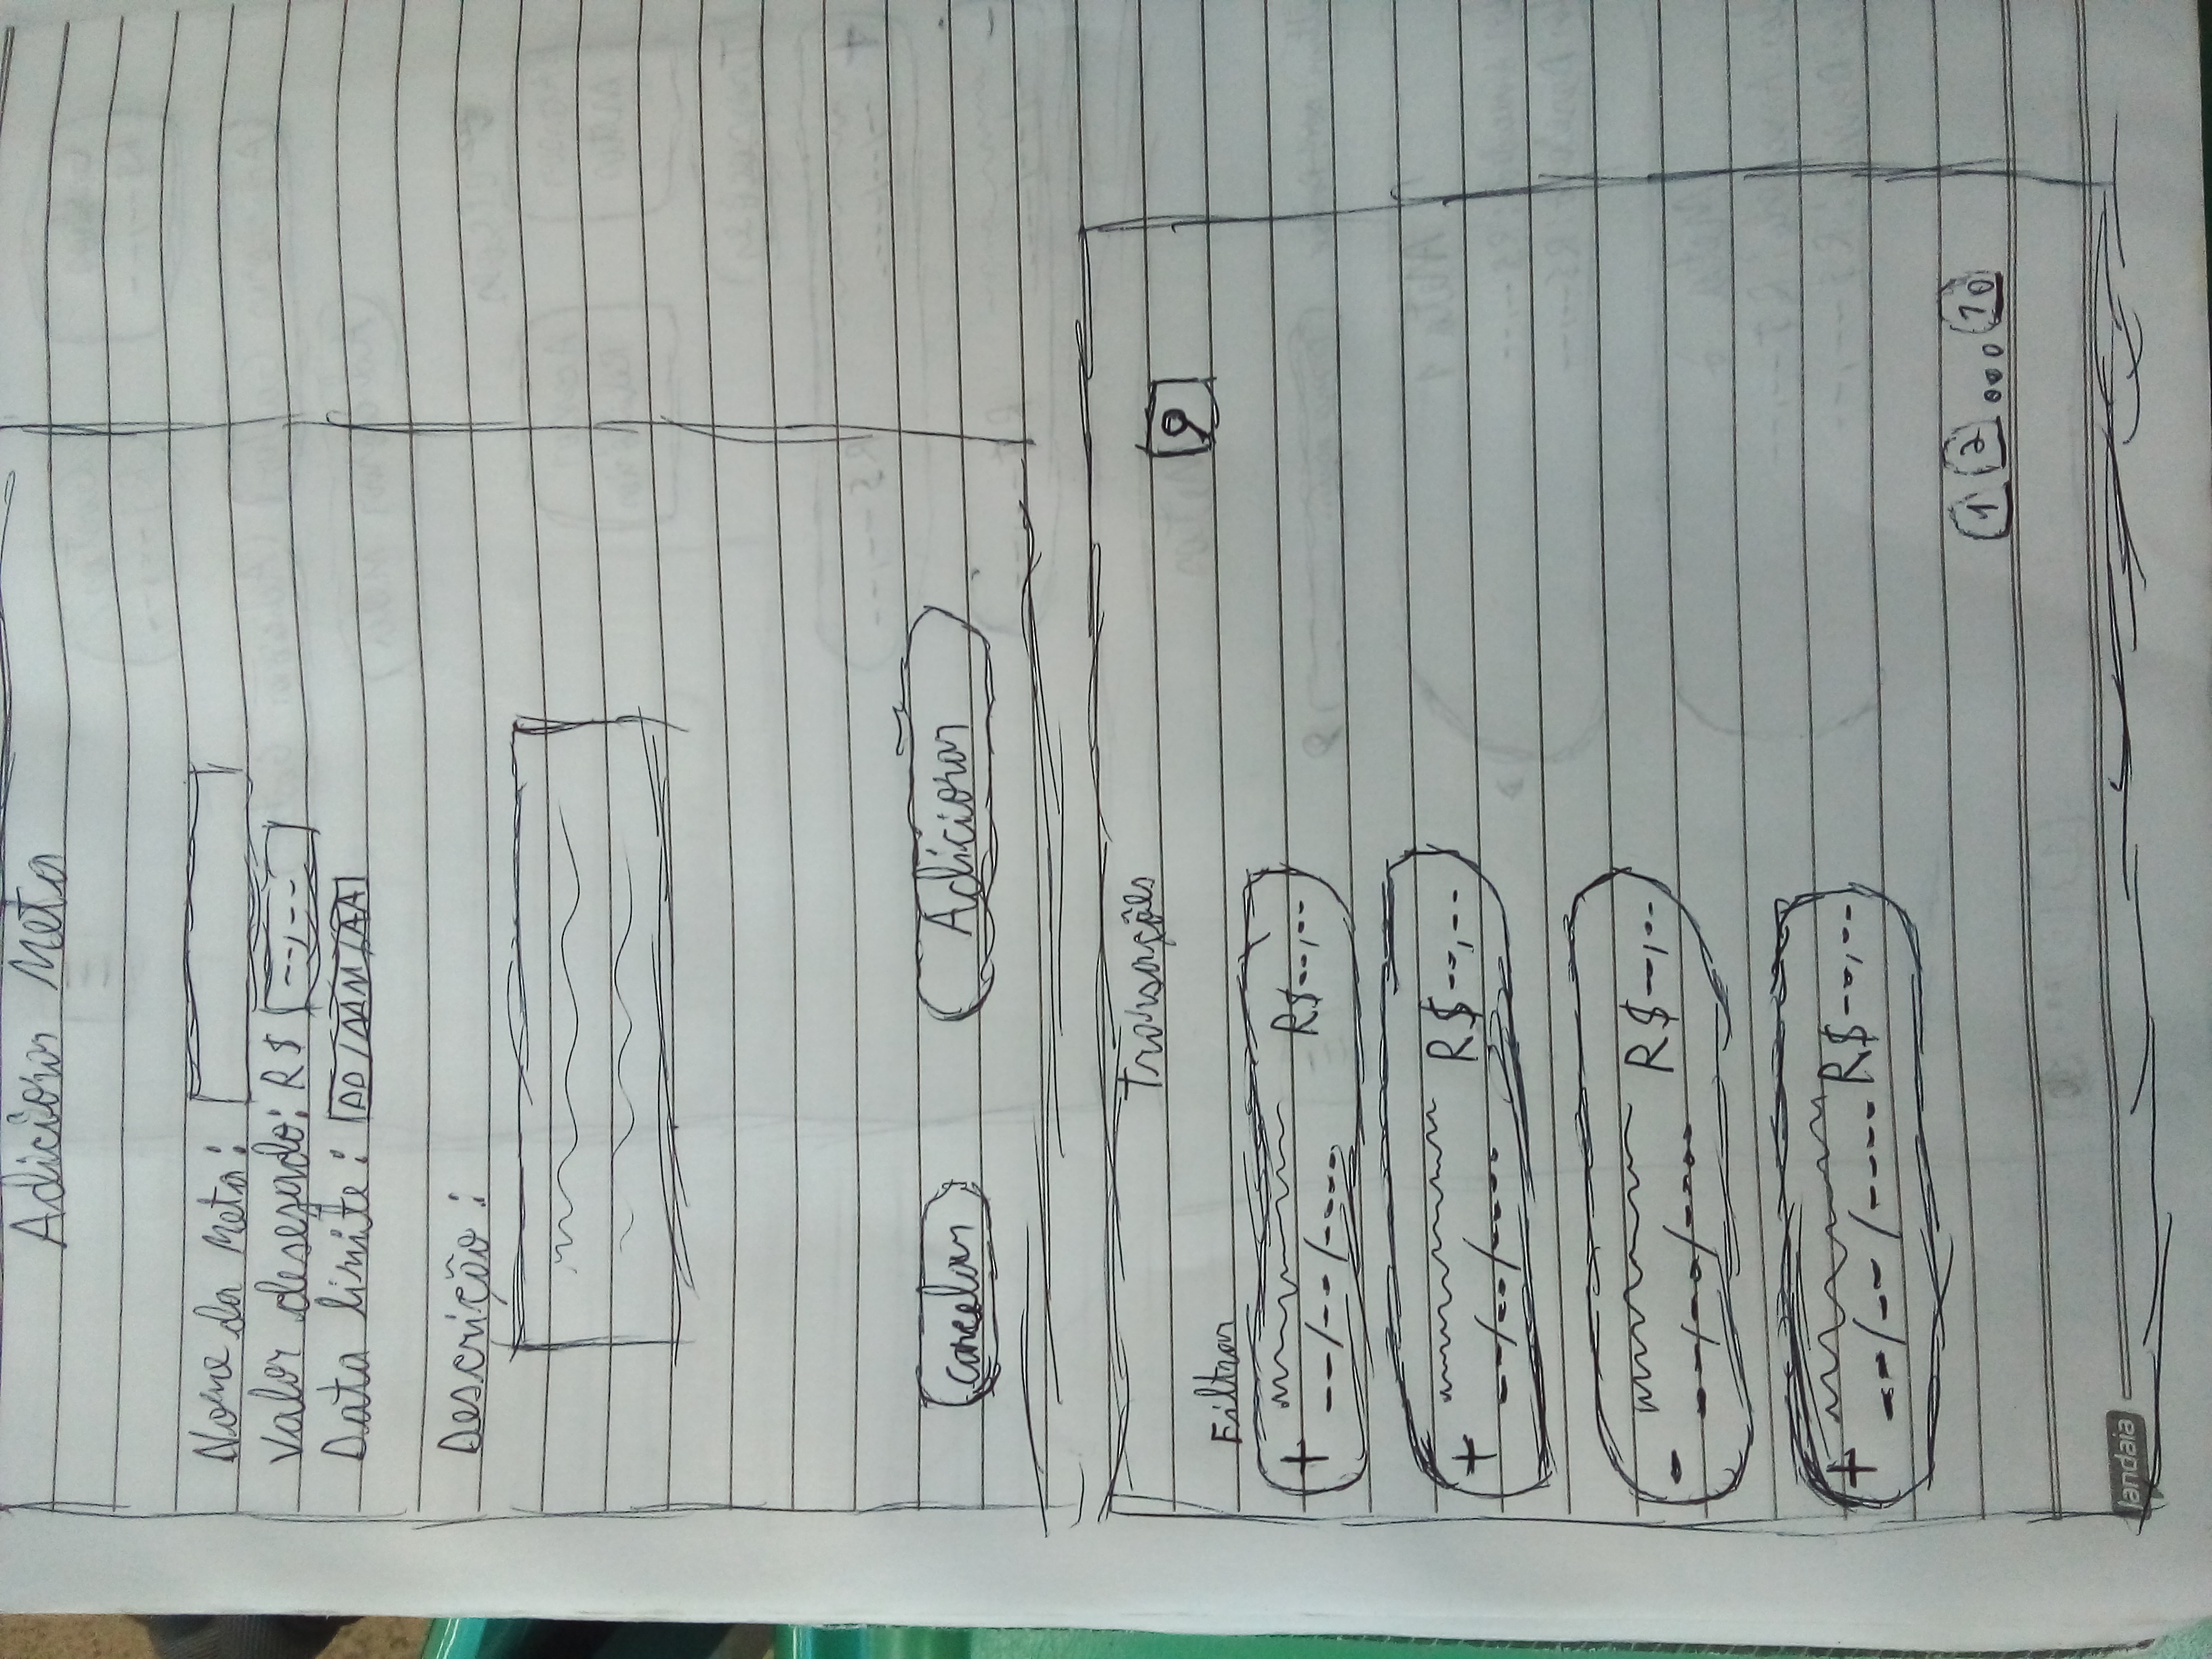 Adicionar Meta
Nome da Meta:
Valor desejado: R$ --,--
Data limite: DD/MM/AA
Descrição:
Cancelar Adicionar
Transações
Filtrar
+ R$--,--
--/--/----
+ R$--,--
--/--/----
- R$--,--
--/--/----
+ R$--,--
--/--/----
1 2 ... 10
landaia